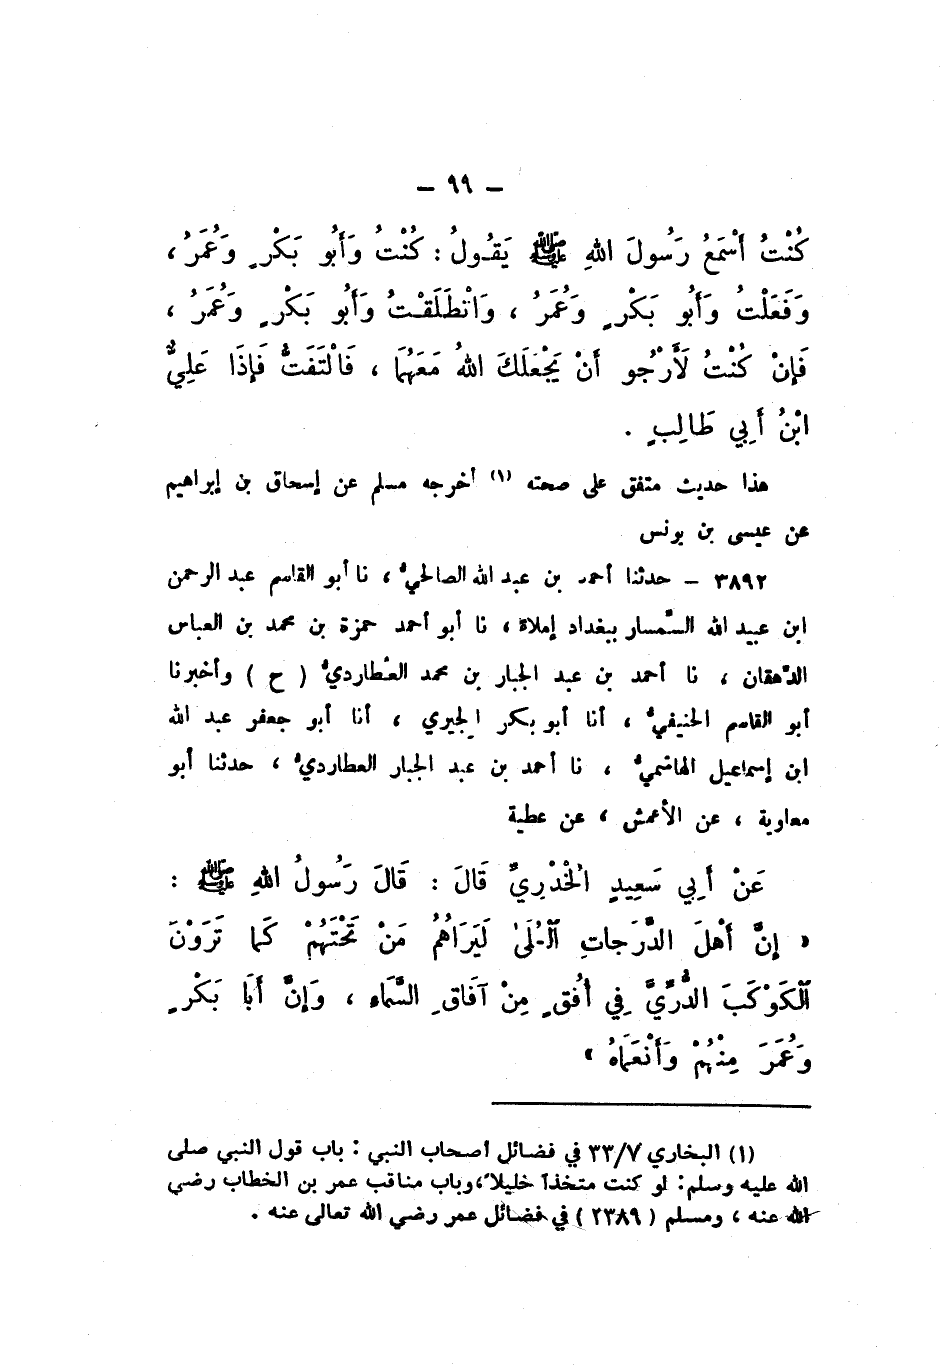 — ٩٩ —
كُنْتُ أَسْمَعُ رَسُولَ اللهِ ﷺ يَقُولُ : كُنْتُ وَأَبُو بَكْرٍ وَعُمَرُ ،
وَفَعَلْتُ وَأَبُو بَكْرٍ وَعُمَرُ ، وَانْطَلَقْتُ وَأَبُو بَكْرٍ وَعُمَرُ ،
فَإِنْ كُنْتُ لَأَرْجُو أَنْ يَجْعَلَكَ اللهُ مَعَهُمَا ، فَالْتَفَتُّ فَإِذَا عَلِيُّ
ابْنُ أَبِي طَالِبٍ .
هذا حديث متفق على صحته (١) أخرجه مسلم عن إسحاق بن إبراهيم
عن عيسى بن يونس
٣٨٩٢ — حدثنا أحمد بن عبد الله الصالحيُ ، نا أبو القاسم عبد الرحمن
ابن عبيد الله السِّمسار ببغداد إملاءً ، نا أبو أحمد حمزة بن محمد بن العباس
الدِّهقان ، نا أحمد بن عبد الجبار بن محمد العُطارديُ ( ح ) وأخبرنا
أبو القاسم الحنيفيُ ، أنا أبو بكر الحِيري ، أنا أبو جعفر عبد الله
ابن إسماعيل الهاشميُ ، نا أحمد بن عبد الجبار العطارديُ ، حدثنا أبو
معاوية ، عن الأعمش ، عن عطية
عَنْ أَبِي سَعِيدٍ الْخُدْرِيِّ قَالَ : قَالَ رَسُولُ اللهِ ﷺ :
« إِنَّ أَهْلَ الدَّرَجاتِ الْعُلَىٰ لَيَرَاهُمُ مَنْ تَحْتَهُمْ كَمَا تَرَوْنَ
الْكَوْكَبَ الدُّرِّيَّ فِي أُفُقٍ مِنْ آفَاقِ السَّمَاءِ ، وَإِنَّ أَبَا بَكْرٍ
وَعُمَرَ مِنْهُمْ وَأَنْعَمَاهُ »
(١) البخاري ٣٣/٧ في فضائل أصحاب النبي : باب قول النبي صلى
الله عليه وسلم: لو كنت متخذاً خليلاً،وباب مناقب عمر بن الخطاب رضي
الله عنه ، ومسلم ( ٢٣٨٩ ) في فضائل عمر رضي الله تعالى عنه .